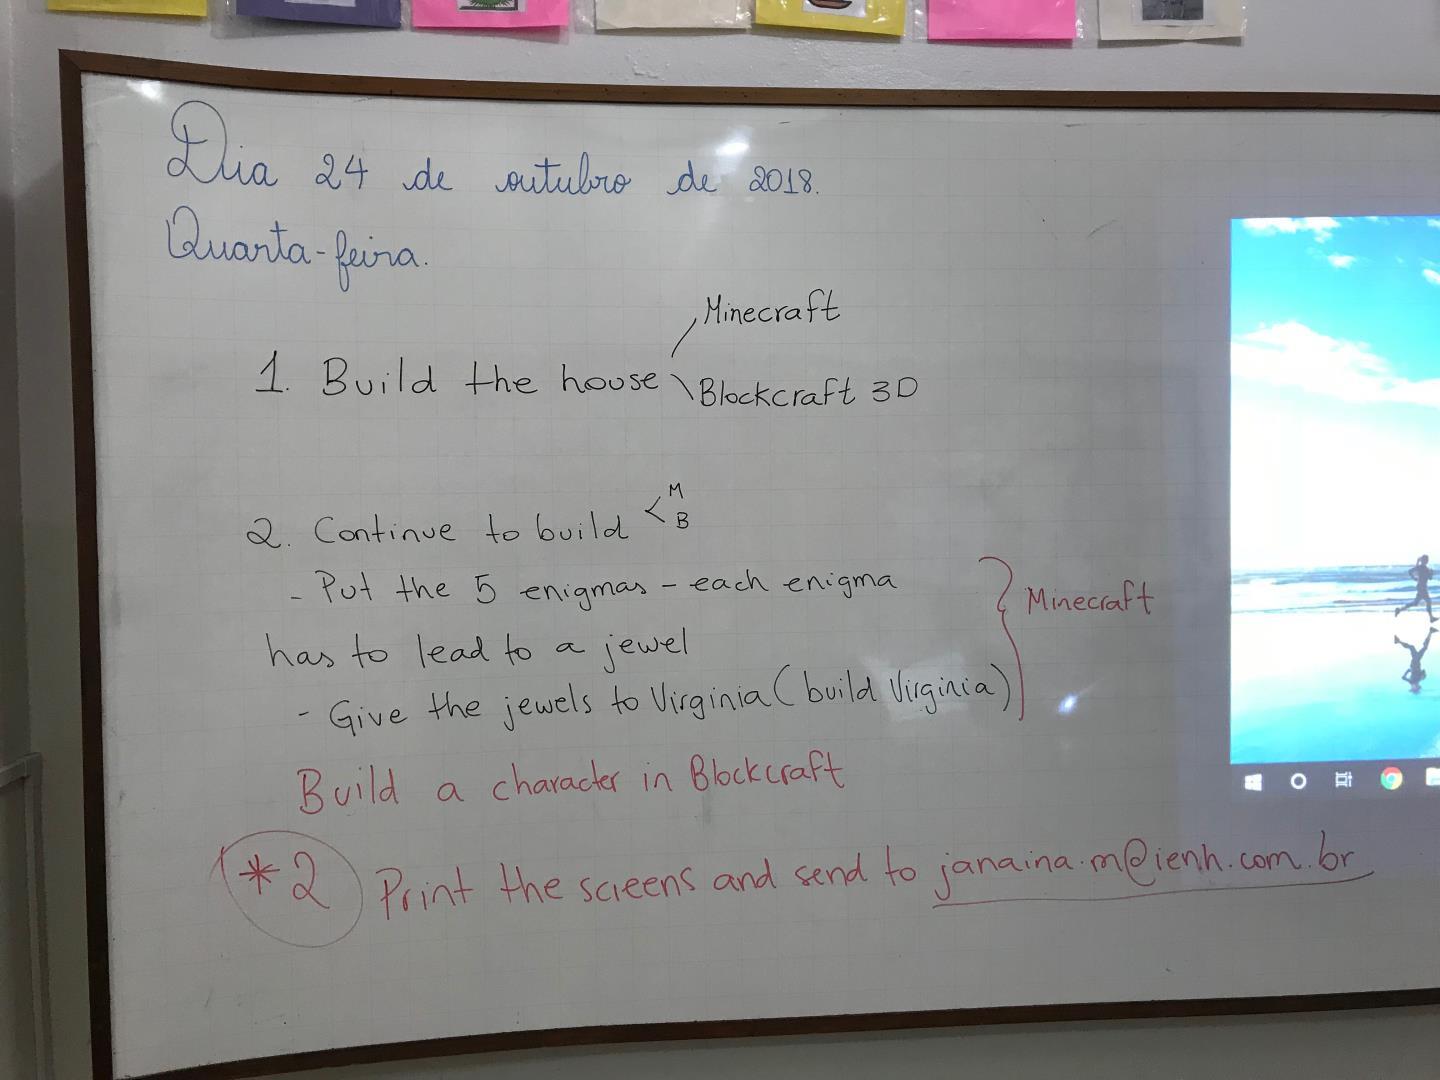 Dia 24 de outubro de 2018.
Quarta-feira.
Minecraft
1. Build the house
Blockcraft 3D
M
2. Continue to build
B
- Put the 5 enigmas - each enigma
has to lead to a jewel
Minecraft
- Give the jewels to Virginia (build Virginia)
Build a character in Blockcraft
*2 Print the screens and send to janaina.m@ienh.com.br